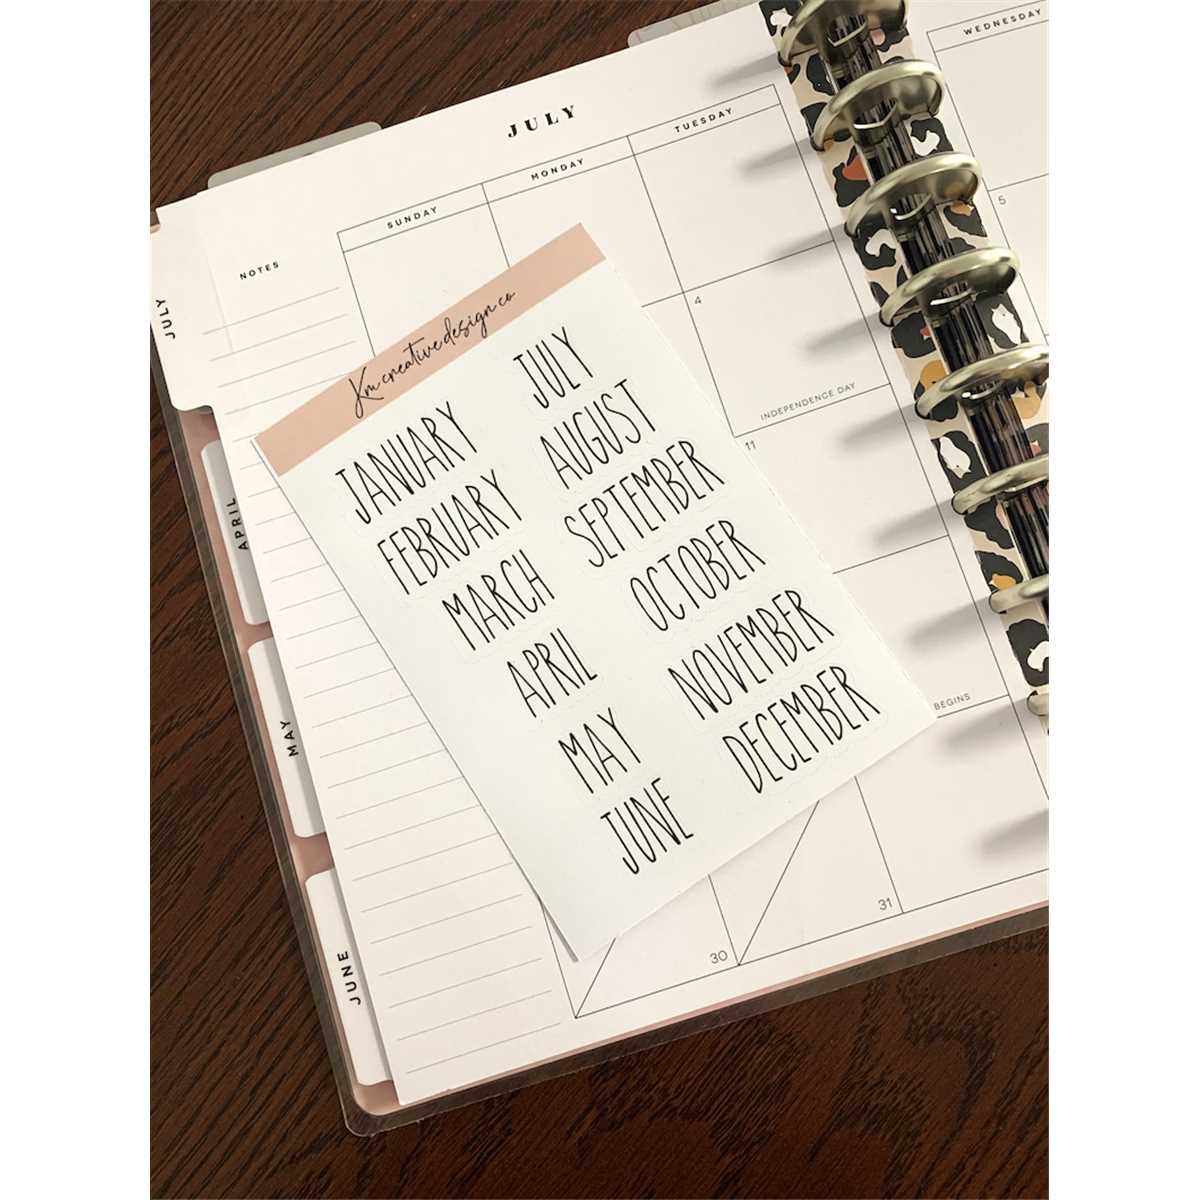 JULY
SUNDAY
MONDAY
TUESDAY
WEDNESDAY
NOTES
4
INDEPENDENCE DAY
5
11
BEGINS
30
31
JULY
APRIL
MAY
JUNE
Km creative design co
JANUARY
FEBRUARY
MARCH
APRIL
MAY
JUNE
JULY
AUGUST
SEPTEMBER
OCTOBER
NOVEMBER
DECEMBER